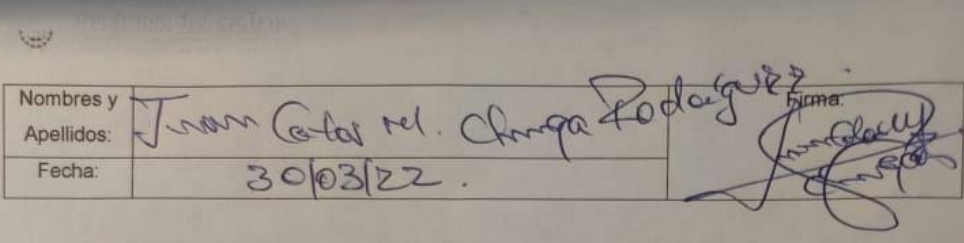 Nombres y Apellidos: Juan Carlos M. Chunga Rodríguez
Firma:
Fecha: 30/03/22.